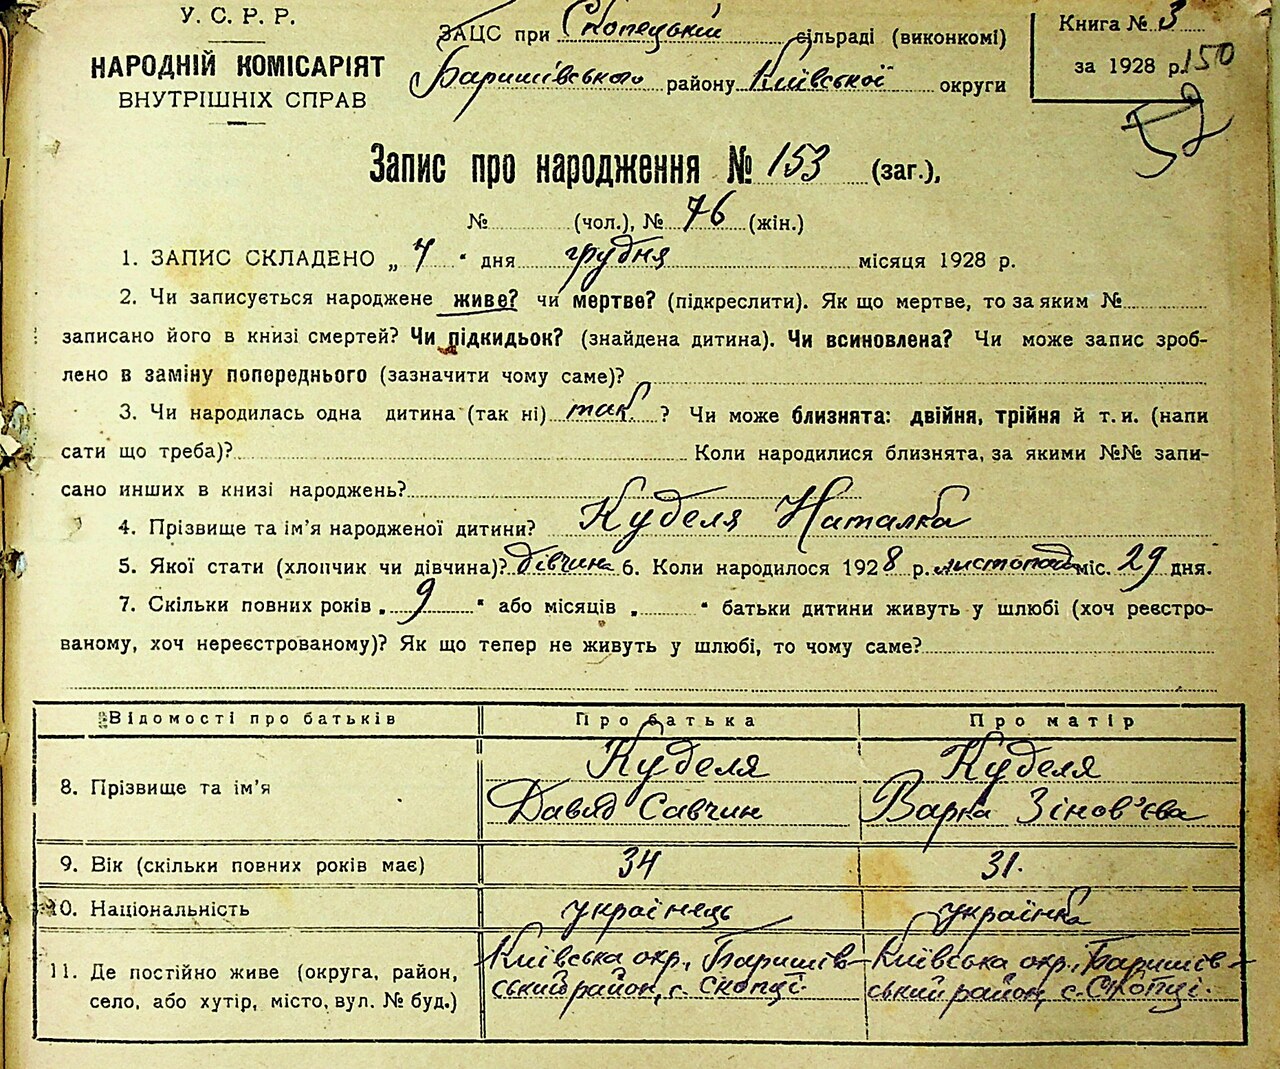 У. С. Р. Р.
НАРОДНІЙ КОМІСАРІЯТ
ВНУТРІШНІХ СПРАВ
ЗАЦС при Скопецькій сільраді (виконкомі)
Баришівського району Київської округи
Книга № 3
за 1928 р. 150
52
Запис про народження № 153 (заг.),
№ (чол.), № 76 (жін.)
1. ЗАПИС СКЛАДЕНО „ 4 " дня грудня місяця 1928 р.
2. Чи записується народжене живе? чи мертве? (підкреслити). Як що мертве, то за яким №
записано його в книзі смертей? Чи підкидьок? (знайдена дитина). Чи всиновлена? Чи може запис зроб-
лено в заміну попереднього (зазначити чому саме)?
3. Чи народилась одна дитина (так ні) так ? Чи може близнята: двійня, трійня й т. и. (напи
сати що треба)? Коли народилися близнята, за якими №№ запи-
сано инших в книзі народжень?
4. Прізвище та ім'я народженої дитини? Куделя Наталка
5. Якої стати (хлопчик чи дівчина)? дівчина 6. Коли народилося 1928 р. листопад міс. 29 дня.
7. Скільки повних років „ 9 " або місяців „ " батьки дитини живуть у шлюбі (хоч реєстро-
ваному, хоч нереєстрованому)? Як що тепер не живуть у шлюбі, то чому саме?
Відомості про батьків Про батька Про матір
8. Прізвище та ім'я Куделя Давид Савчин Куделя Варка Зінов'єва
9. Вік (скільки повних років має) 34 31.
10. Національність українець українка
11. Де постійно живе (округа, район, Київська окр., Баришів- Київська окр., Баришів-
село, або хутір, місто, вул. № буд.) ський район, с. Скопці. ський район, с. Скопці.